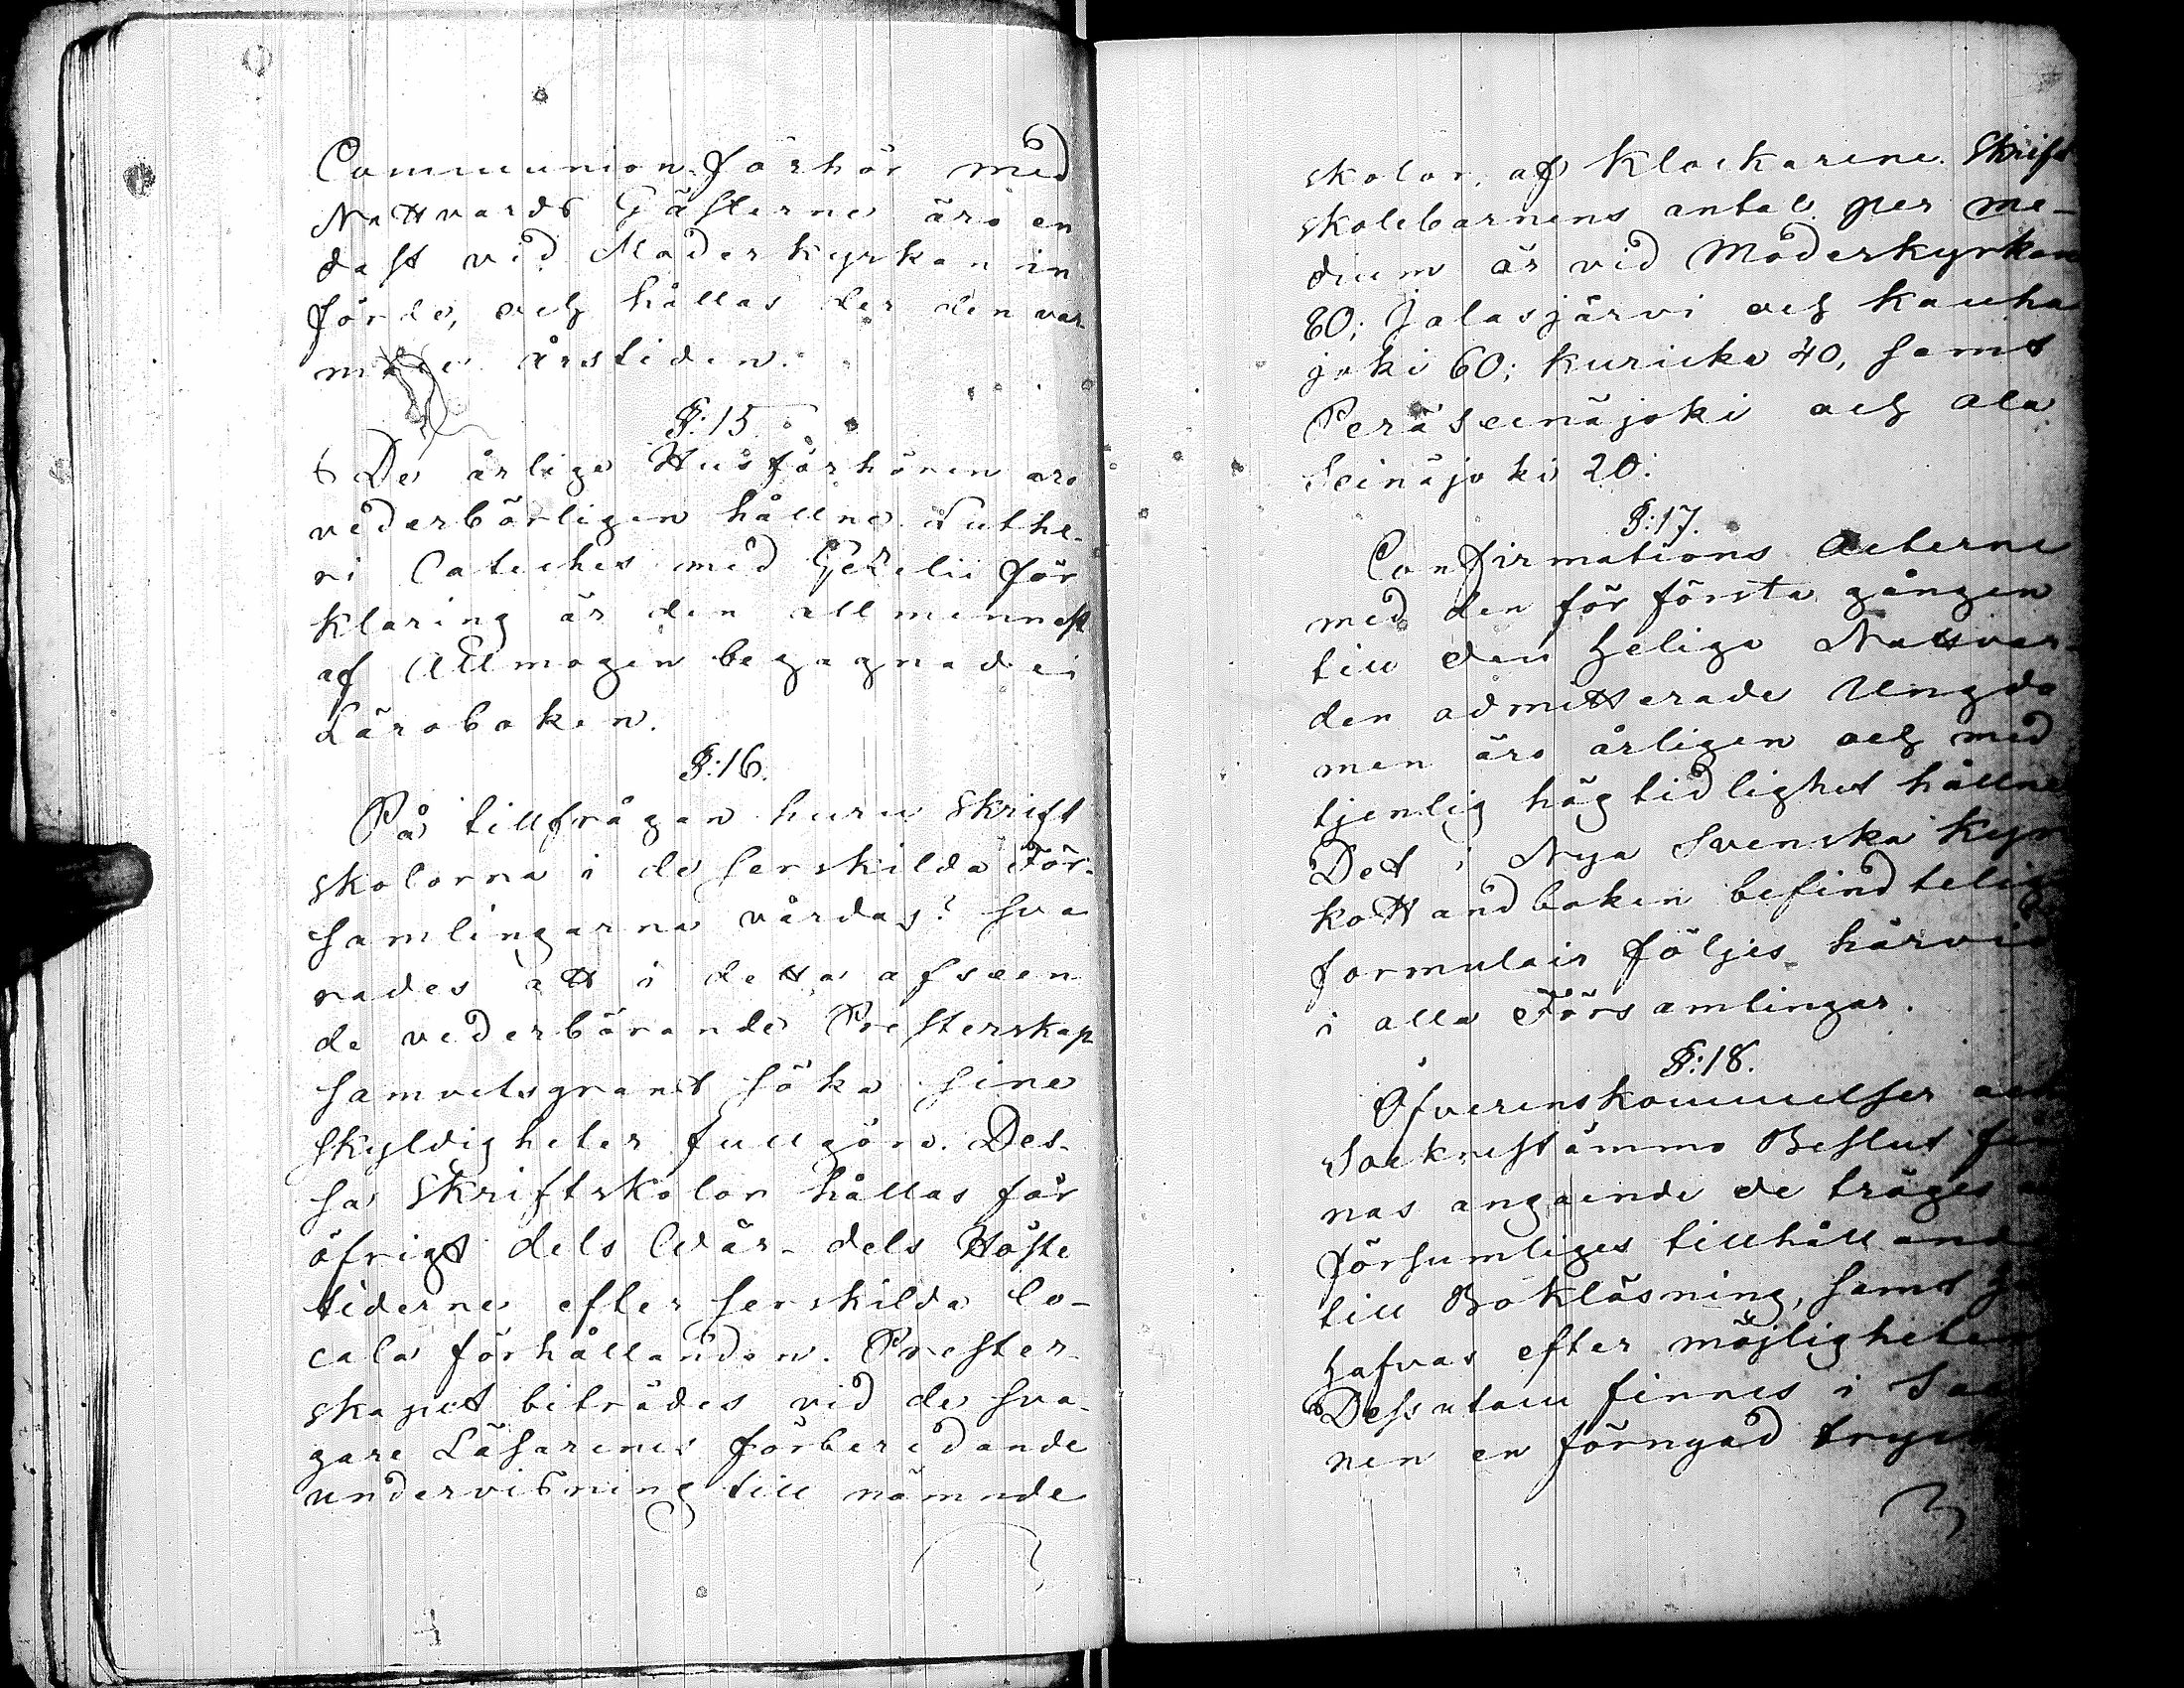 Communion förhör med
Nattvards Gästerne äro en
dast vid Moderkyrkan in
förde, och hållas der den var
mare årstiden.
§:15
De årlige Husförhören äro
vederbörligen hållne. Luthe-
ri Cateches med Gezelii för
klaring är den allmennast
af Allmogen begagnade
Läroboken.
§:16.
På tillfrågan huru Skrift
skolorna i de serskilda För-
samlingarna vårdas? sva
rades att i detta afseen
de vederbörande Presterskap
samvetsgrant söka sine
skyldigheter fullgöra. Des-
sa Skriftskolor hållas för
öfrigt dels Wår- dels Höste
tiderne efter serskilda lo-
cala förhållanden. Prester-
skapet biträdes vid de sva-
gare Läsarenes förberedande
undervisning till nämnde
skolor, af Klockarene. Skrift
skolebarnens antal per me-
dium är vid Moderkyrkan
80; Jalasjärvi och Kauha
joki 60; Kuricka 40, samt
Peräseinäjoki och Ala
Seinäjoki 20.
§:17.
Confirmations Acterne
med den för första gången
till den Helige Nattvar-
den admitterade Ungdo
men äro årligen och med
tjenlig högtidlighet hållne
Det i Nya Svenska Kyr
kohandboken befindtelige
formulair följes härvid
i alla Församlingar.
§:18.
Öfverenskommelser och
Socknestämmo Beslut fin
nas angående de tröges
försumliges tillhållande
till Bokläsning, samt
hafvas efter möjligheten
Dessutom finnes i Sac
nen en förnyad tryckt